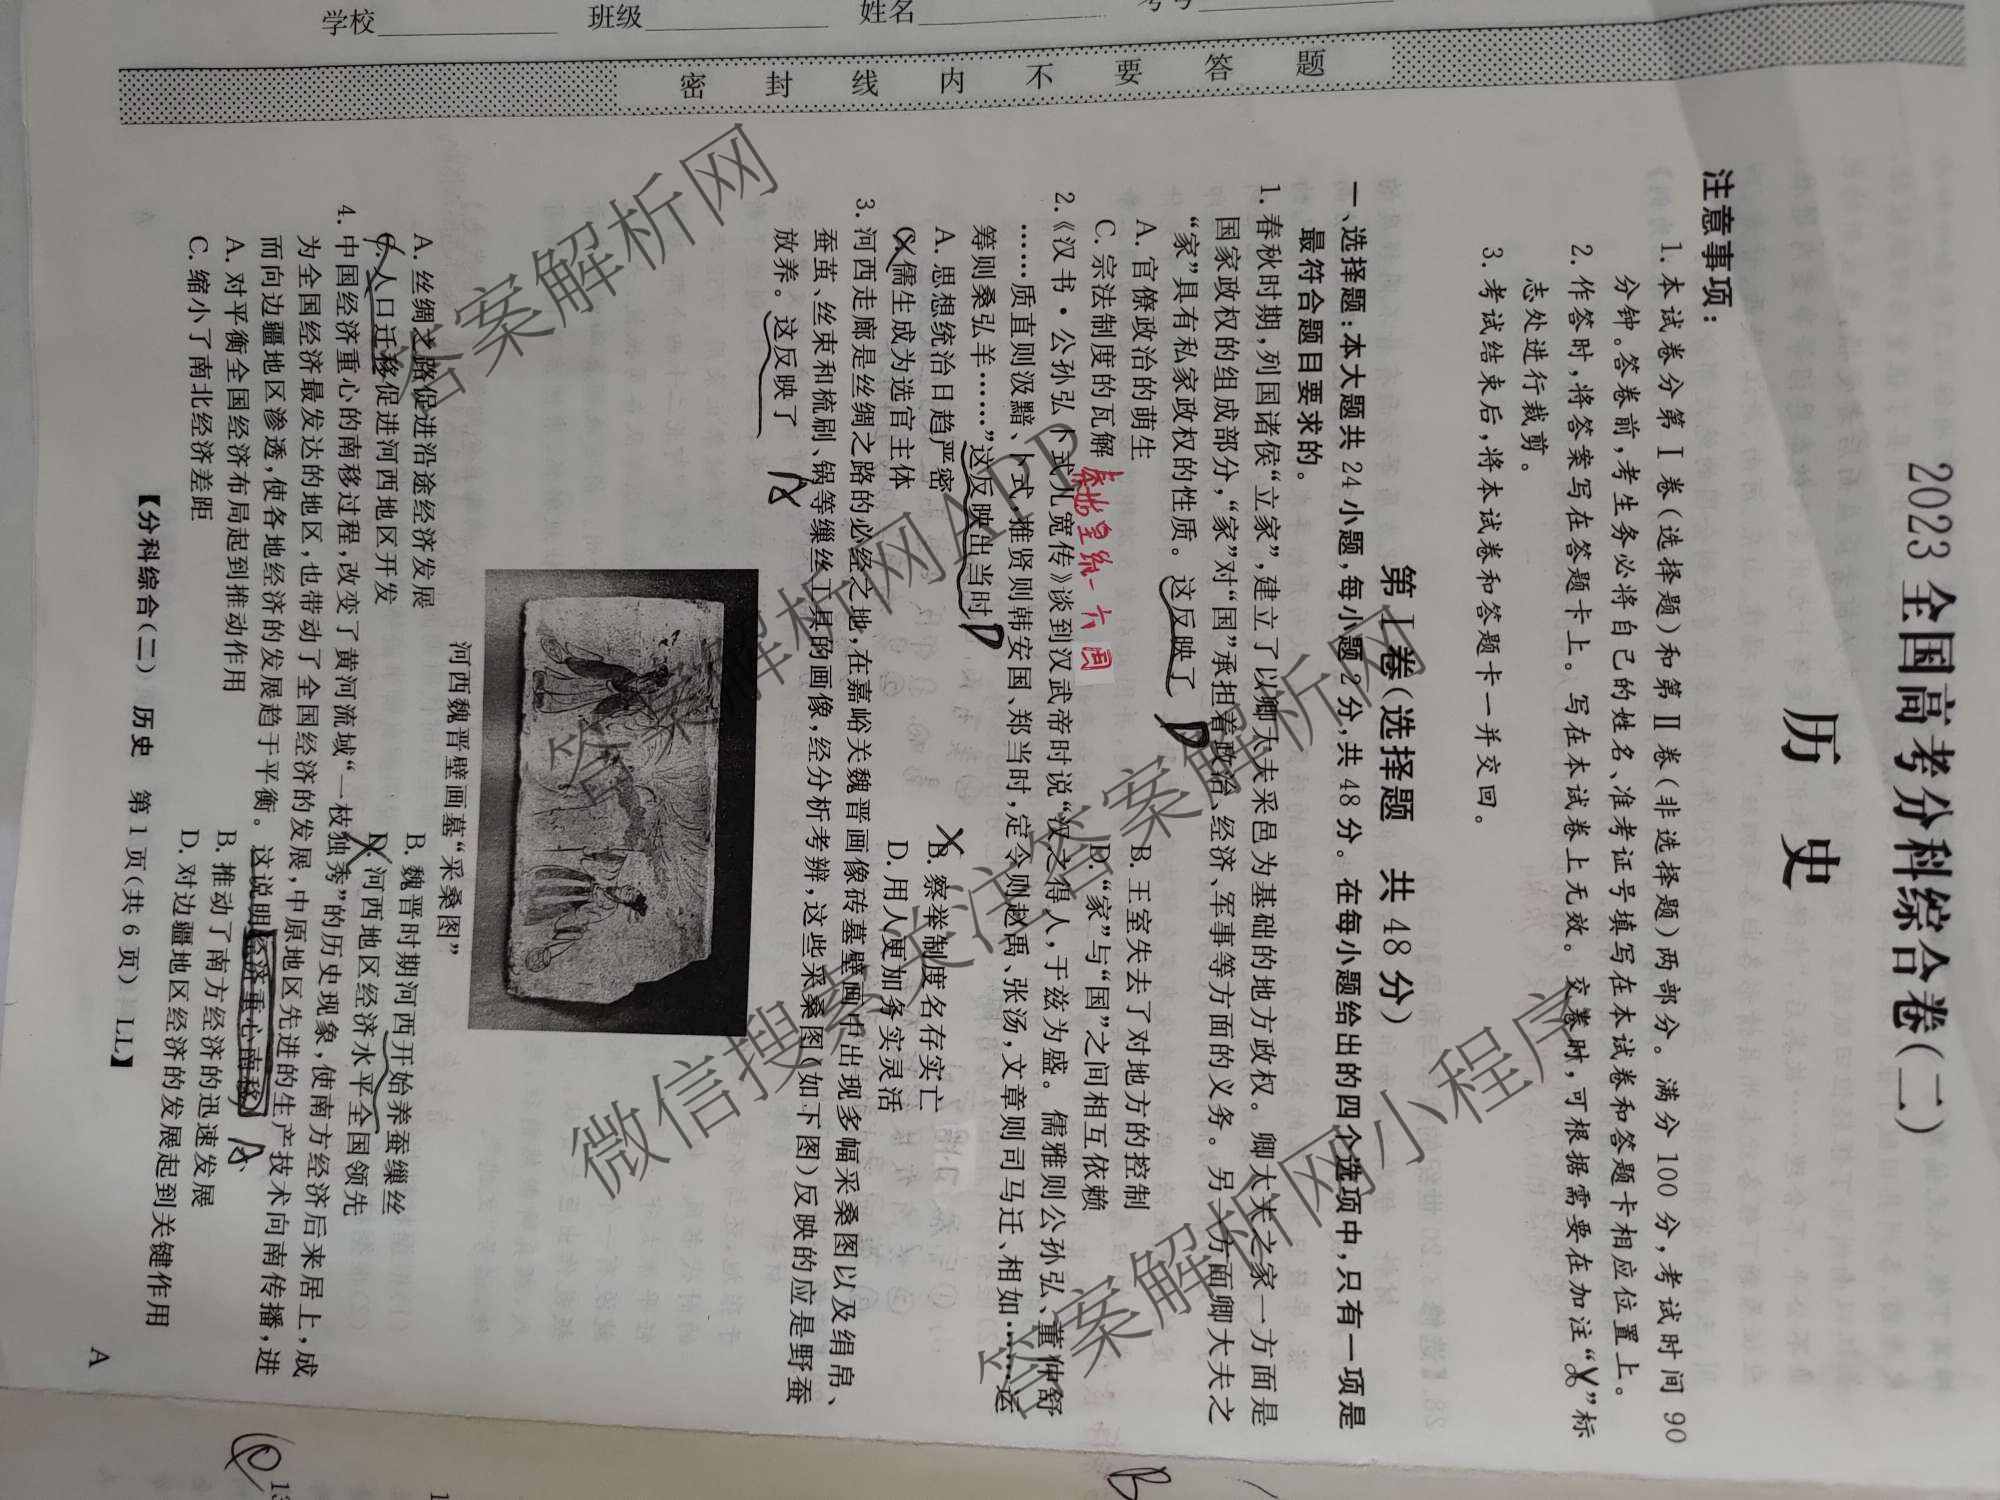 学校 班级 姓名 考号
密 封 线 内 不 要 答 题
2023全国高考分科综合卷(二)
历 史
注意事项:
1.本试卷分第Ⅰ卷(选择题)和第Ⅱ卷(非选择题)两部分。满分100分,考试时间90
分钟。答卷前,考生务必将自己的姓名、准考证号填写在本试卷和答题卡相应位置上。
2.作答时,将答案写在答题卡上。写在本试卷上无效。交卷时,可根据需要在加注“ ”标
志处进行裁剪。
3.考试结束后,将本试卷和答题卡一并交回。
第Ⅰ卷(选择题 共48分)
一、选择题:本大题共24小题,每小题2分,共48分。在每小题给出的四个选项中,只有一项是
最符合题目要求的。
1.春秋时期,列国诸侯“立家”,建立了以卿大夫采邑为基础的地方政权。卿大夫之家一方面是
国家政权的组成部分,“家”对“国”承担着政治、经济、军事等方面的义务。另一方面卿大夫之
“家”具有私家政权的性质。这反映了 D
A.官僚政治的萌生 B.王室失去了对地方的控制
C.宗法制度的瓦解 D.“家”与“国”之间相互依赖
秦始皇统一六国
2.《汉书·公孙弘卜式儿宽传》谈到汉武帝时说“汉之得人,于兹为盛。儒雅则公孙弘、董仲舒
……质直则汲黯、卜式,推贤则韩安国、郑当时,定令则赵禹、张汤,文章则司马迁、相如……运
筹则桑弘羊……”这反映出当时 D
A.思想统治日趋严密 B.察举制度名存实亡
C.儒生成为选官主体 D.用人更加务实灵活
3.河西走廊是丝绸之路的必经之地,在嘉峪关魏晋画像砖墓壁画中出现多幅采桑图以及绢帛、
蚕茧、丝束和梳刷、锅等缫丝工具的画像,经分析考辨,这些采桑图(如下图)反映的应是野蚕
放养。这反映了 A
河西魏晋壁画墓“采桑图”
A.丝绸之路促进沿途经济发展 B.魏晋时期河西开始养蚕缫丝
C.人口迁移促进河西地区开发 D.河西地区经济水平全国领先
4.中国经济重心的南移过程,改变了黄河流域“一枝独秀”的历史现象,使南方经济后来居上,成
为全国经济最发达的地区,也带动了全国经济的发展,中原地区先进的生产技术向南传播,进
而向边疆地区渗透,使各地经济的发展趋于平衡。这说明经济重心南移 A
A.对平衡全国经济布局起到推动作用 B.推动了南方经济的迅速发展
C.缩小了南北经济差距 D.对边疆地区经济的发展起到关键作用
【分科综合(二) 历史 第1页(共6页) LL】
A
B
答案解析网
微信搜索关注答案解析网
答案解析网APP
答案解析网小程序